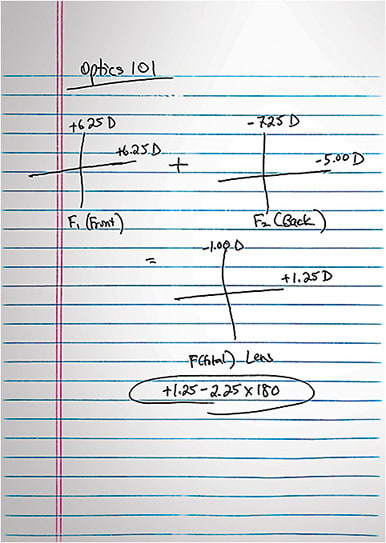 Optics 101
+6.25 D
+6.25 D
+
-7.25 D
-5.00 D
F₁ (Front)
F₂ (Back)
=
-1.00 D
+1.25 D
F(total) Lens
+1.25 - 2.25 x 180